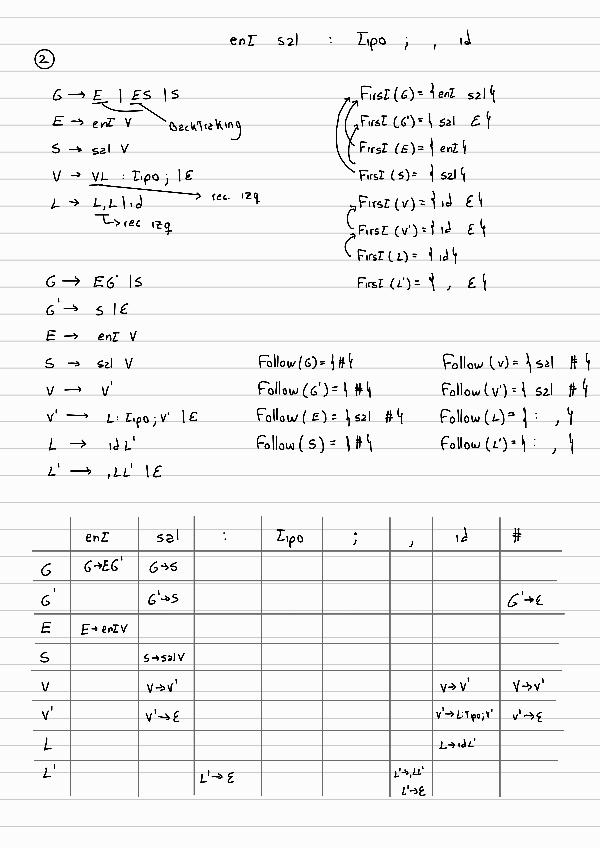 ent sal : tipo ; , id
②
G → E | ES | S
Backtraking
E → ent V
S → sal V
V → VL : tipo ; | ε
rec. izq
L → L,L | id
rec izq
First (G) = { ent sal }
First (G') = { sal ε }
First (E) = { ent }
First (S) = { sal }
First (V) = { id ε }
First (V') = { id ε }
First (L) = { id }
First (L') = { , ε }
G → EG' | S
G' → S | ε
E → ent V
S → sal V
V → V'
V' → L : tipo ; V' | ε
L → id L'
L' → ,LL' | ε
Follow (G) = { # }
Follow (G') = { # }
Follow (E) = { sal # }
Follow (S) = { # }
Follow (V) = { sal # }
Follow (V') = { sal # }
Follow (L) = { : , }
Follow (L') = { : , }
ent sal : tipo ; , id #
G G→EG' G→S
G' G'→S G'→ε
E E→entV
S S→salV
V V→V' V→V' V→V'
V' V'→ε V'→L:tipo;V' V'→ε
L L→idL'
L' L'→ε L'→,LL'
L'→ε